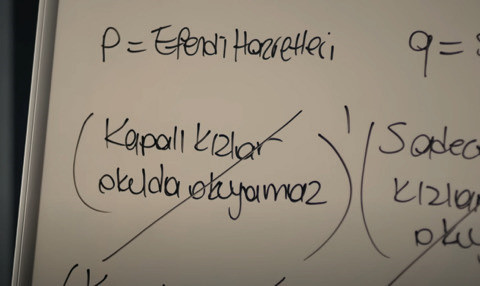 P = Efendi Hazretleri
q =
(Kapalı kızlar
okulda okuyamaz)'
(Sadec
kızla
oku
(K